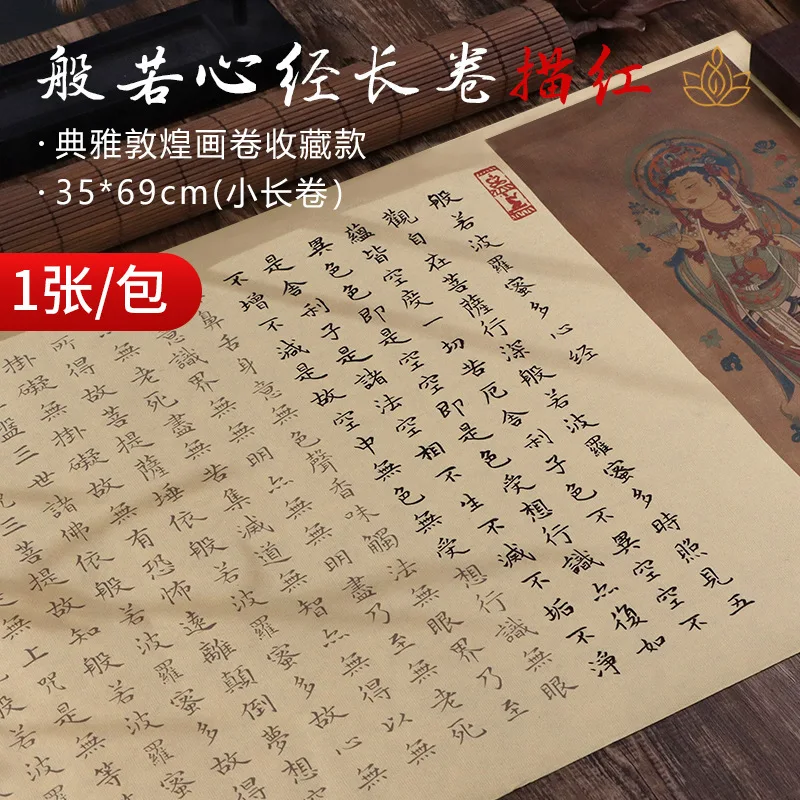 般若心经长卷描红
·典雅敦煌画卷收藏款
·35*69cm(小长卷)
1张/包
般若波羅蜜多心経
觀自在菩薩行深般若波羅蜜多時照見五
蘊皆空度一切苦厄舍利子色不異空空不
異色色即是空空即是色受想行識亦復如
是舍利子是諸法空相不生不滅不垢不淨
不增不減是故空中無色無受想行識無眼
鼻舌身意無色聲香味觸法無眼界乃至
意識界無無明亦無無明盡乃至無老死
無老死盡無苦集滅道無智亦無得以無
所得故菩提薩埵依般若波羅蜜多故心無
掛礙無掛礙故無有恐怖遠離顛倒夢想
盤三世諸佛依般若波羅蜜多故得
三菩提故知般若波羅蜜
無上咒是無等